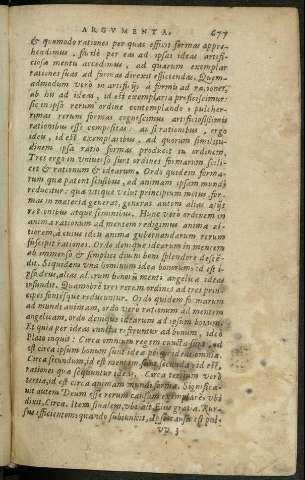 ARGVMENTA. 677
& quomodo rationes per quas efficit formas appre-
hendimus, facilè per eas ad ipsas ideas artifi-
ciosæ mentis accedimus, ad quarum exemplar
rationes suas ad formas direxit efficiendas. Quem-
admodum verò in artificijs à formis ad rationes,
ab his ad ideas, id est exemplaria proficiscimur:
sic in ipso rerum ordine contemplando pulcher-
rimas rerum formas cognoscimus artificiosissimis
rationibus esse compositas: ac si rationibus, ergo
ideis, id est exemplaribus, ad quorum similitu-
dinem ipsa ratio formas producit in ordinem.
Tres ergo in vniuerso sunt ordines formarum scili-
cet & rationum & idearum. Ordo quidem forma-
rum qua patent sensibus, ad animam ipsam mundi
reducitur: qua vtique velut principium motus for-
mas in materia generat, generat autem alias alijs
rationibus atque seminibus. Hunc verò ordinem in
anima rationum ad mentem redigimus anima al-
tiorem, à cuius ideis anima gubernandarum rerum
suscipit rationes. Ordo denique idearum in mentem
ab immenso & simplici diuini boni splendore descen-
dit. Siquidem vna bonitatis idea bonorum, id est
ipse deus, alias aliarum bonorum menti angelicæ ideas
infundit. Quamobrē tres rerum ordines ad tres princi-
pes fontesque reducuntur. Ordo quidem formarum
ad mundi animam, ordo verò rationum ad mentem
angelicam, ordo denique idearum ad ipsum bonum.
Et quia per ideas cuncta referuntur ad bonum, ideo
Plato inquit: Circa omnium regem cuncta sunt, id
est circa ipsum bonum sunt ideæ per quas omnia.
Circa secundum, id est mentem sunt secunda, id est,
rationes qua sequuntur ideas. Circa tertium verò
tertia, id est circa animam mundi formæ. Significa-
uit autem Deum esse rerum causam exemplarem vbi
dixit, Circa. Item finalem, vbi ait Eius gratia. Rur-
sus efficientem, quando subiunxit, Ipse causa est pul-
VV 3